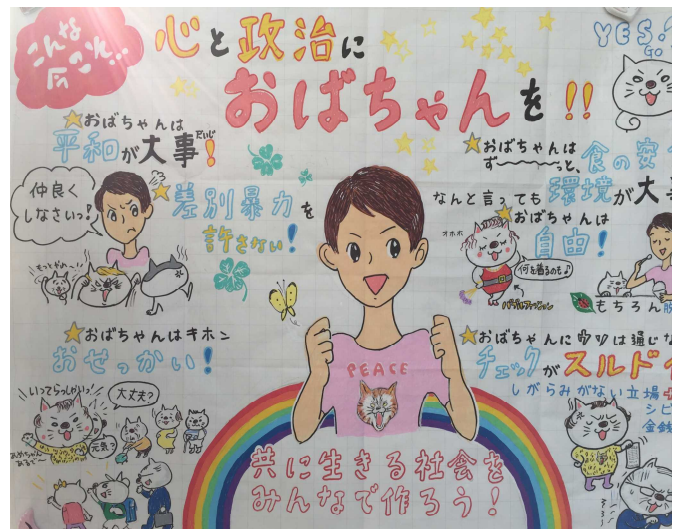 こんな
心と政治に
おばちゃんを!!
YES!
GO
☆おばちゃんは
平和が大事!
だいじ
仲良く
しなさいっ!
☆差別暴力を
許さない!
☆おばちゃんは
ず〜〜〜っと、食の安
なんと言っても環境が大
☆おばちゃんは
自由!
オホホ
何を着るのも♪
もちろん
☆おばちゃんはキホン
おせっかい!
いってらっしゃいっ!
大丈夫?
元気?
PEACE
☆おばちゃんにウソは通じな
チェックがスルドイ
しがらみがない立場
シビ
共に生きる社会を
みんなで作ろう!